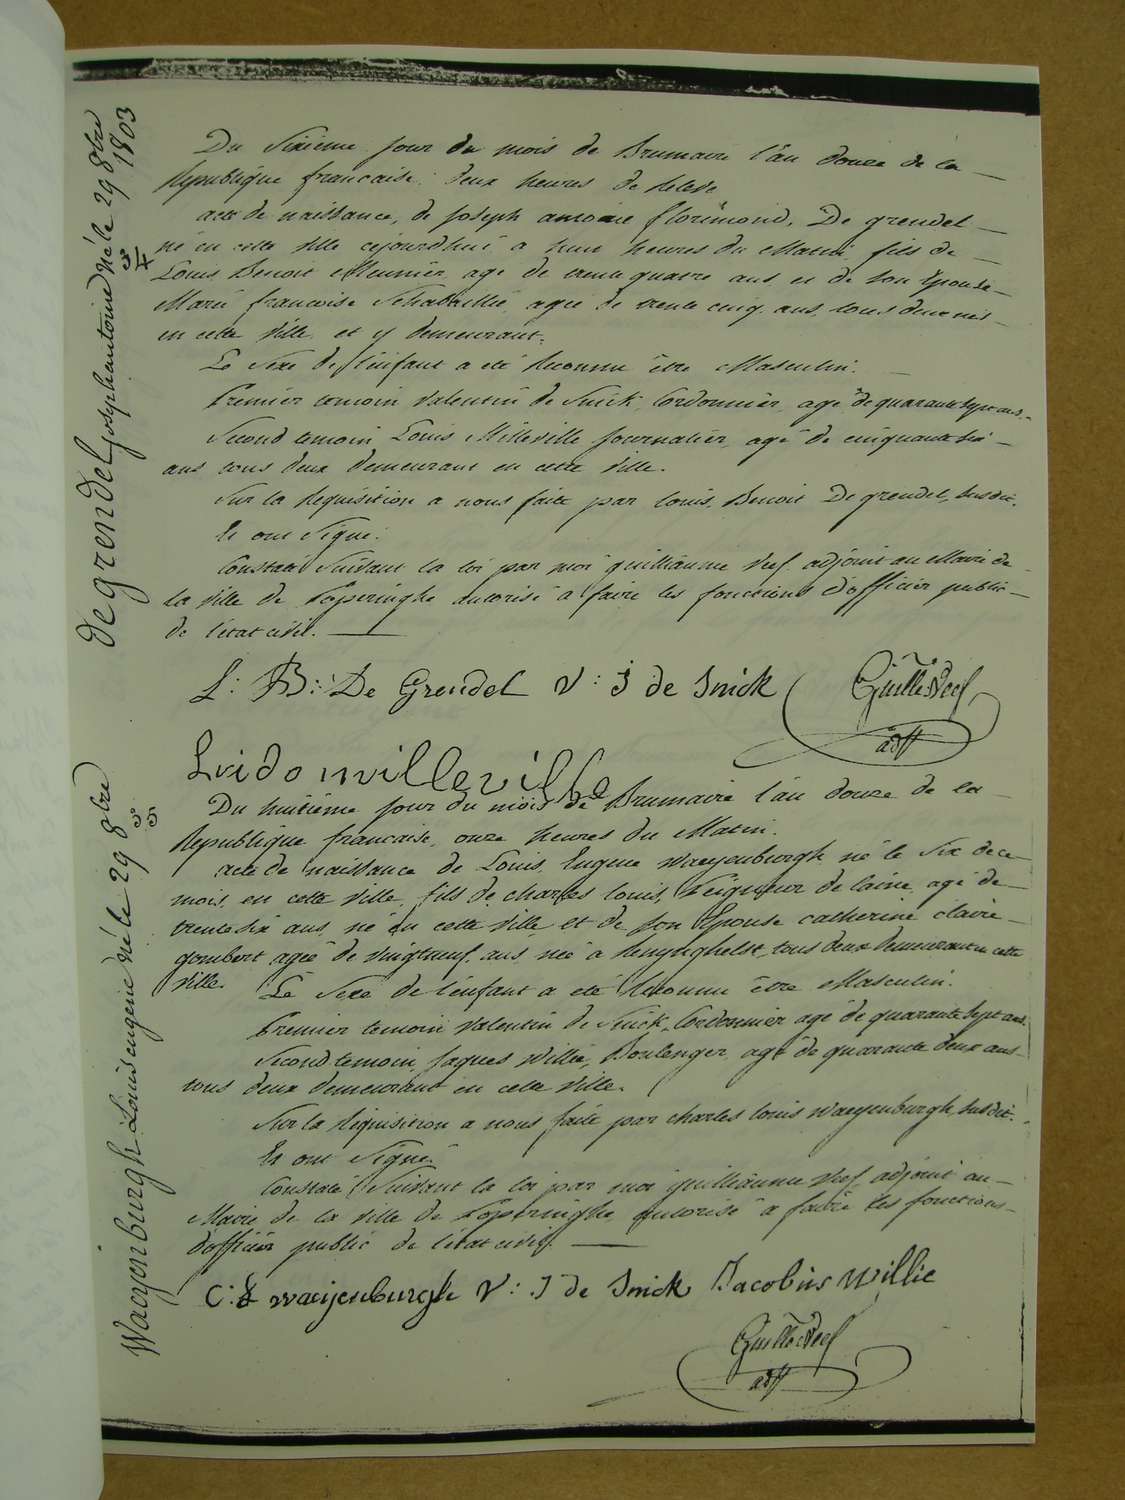 Du Sixieme jour du mois de Brumaire l'an douze de la
Republique francaise, deux heures de Relevé
acte de naissance, de Joseph antoine florimond, De grendel
né en cette ville cejourdhui a heures du Matin, fils de
Louis Benoit Meunier, agé de trente quatre ans et de son Epouse
Marie francoise agée de trente cinq ans, tous deux nés
en cette Ville, et y demeurant.
Le Sexe de l'enfant a été Reconnu être Masculin.
Premier temoin Valentin de Snick, Cordonnier, agé de quarante sept ans.
Second temoin Louis Milleville Journalier, agé de cinquante six
ans tous deux demeurant en cette Ville.
Sur la Requisition a nous faite par louis, Benoit De grendel, susdit.
Et ont Signé.
Constaté Suivant la loi par moi guilliaume Veel adjoint au Maire de
la Ville de Poperinghe autorisé a faire les fonctions d'officier public
de l'etat civil.
L: B: De Grendel V: J de Snick Guille Veel
adjt
Lvido millevillhe
de grendel Joseph antoine né le 29 8bre 1803
34
Du huitieme jour du mois de Brumaire l'an douze de la
Republique francaise, onze heures du Matin.
acte de naissance de Louis, Eugene Waeyenburgh né le Six de ce
mois, en cette Ville, fils de charles louis, Peigneur de laine, agé de
trente six ans, né en cette Ville et de son Epouse catherine claire
gombert agée de Vingt neuf ans née a Renynghelst, tous deux demeurant en cette
Ville.
Le Sexe de l'enfant a été Reconnu être Masculin.
Premier temoin Valentin de Snick, Cordonnier agé de quarante Sept ans.
Second temoin, Jaques Willie, Boulenger, agé de quarante deux ans
tous deux demeurant en cette Ville.
Sur la Requisition a nous faite par charles louis Waeyenburgh, Susdit.
Et ont Signé.
Constaté Suivant la loi par moi guilliaume Veel adjoint au
Maire de la Ville de Poperinghe, autorisé a faire les fonctions
d'officier public de l'état civil.
C: L waeijenburghe V: J de Snick Jacobus Willie
Guille Veel
adjt
Waeyenburgh Louis eugene né le 29 8bre
35